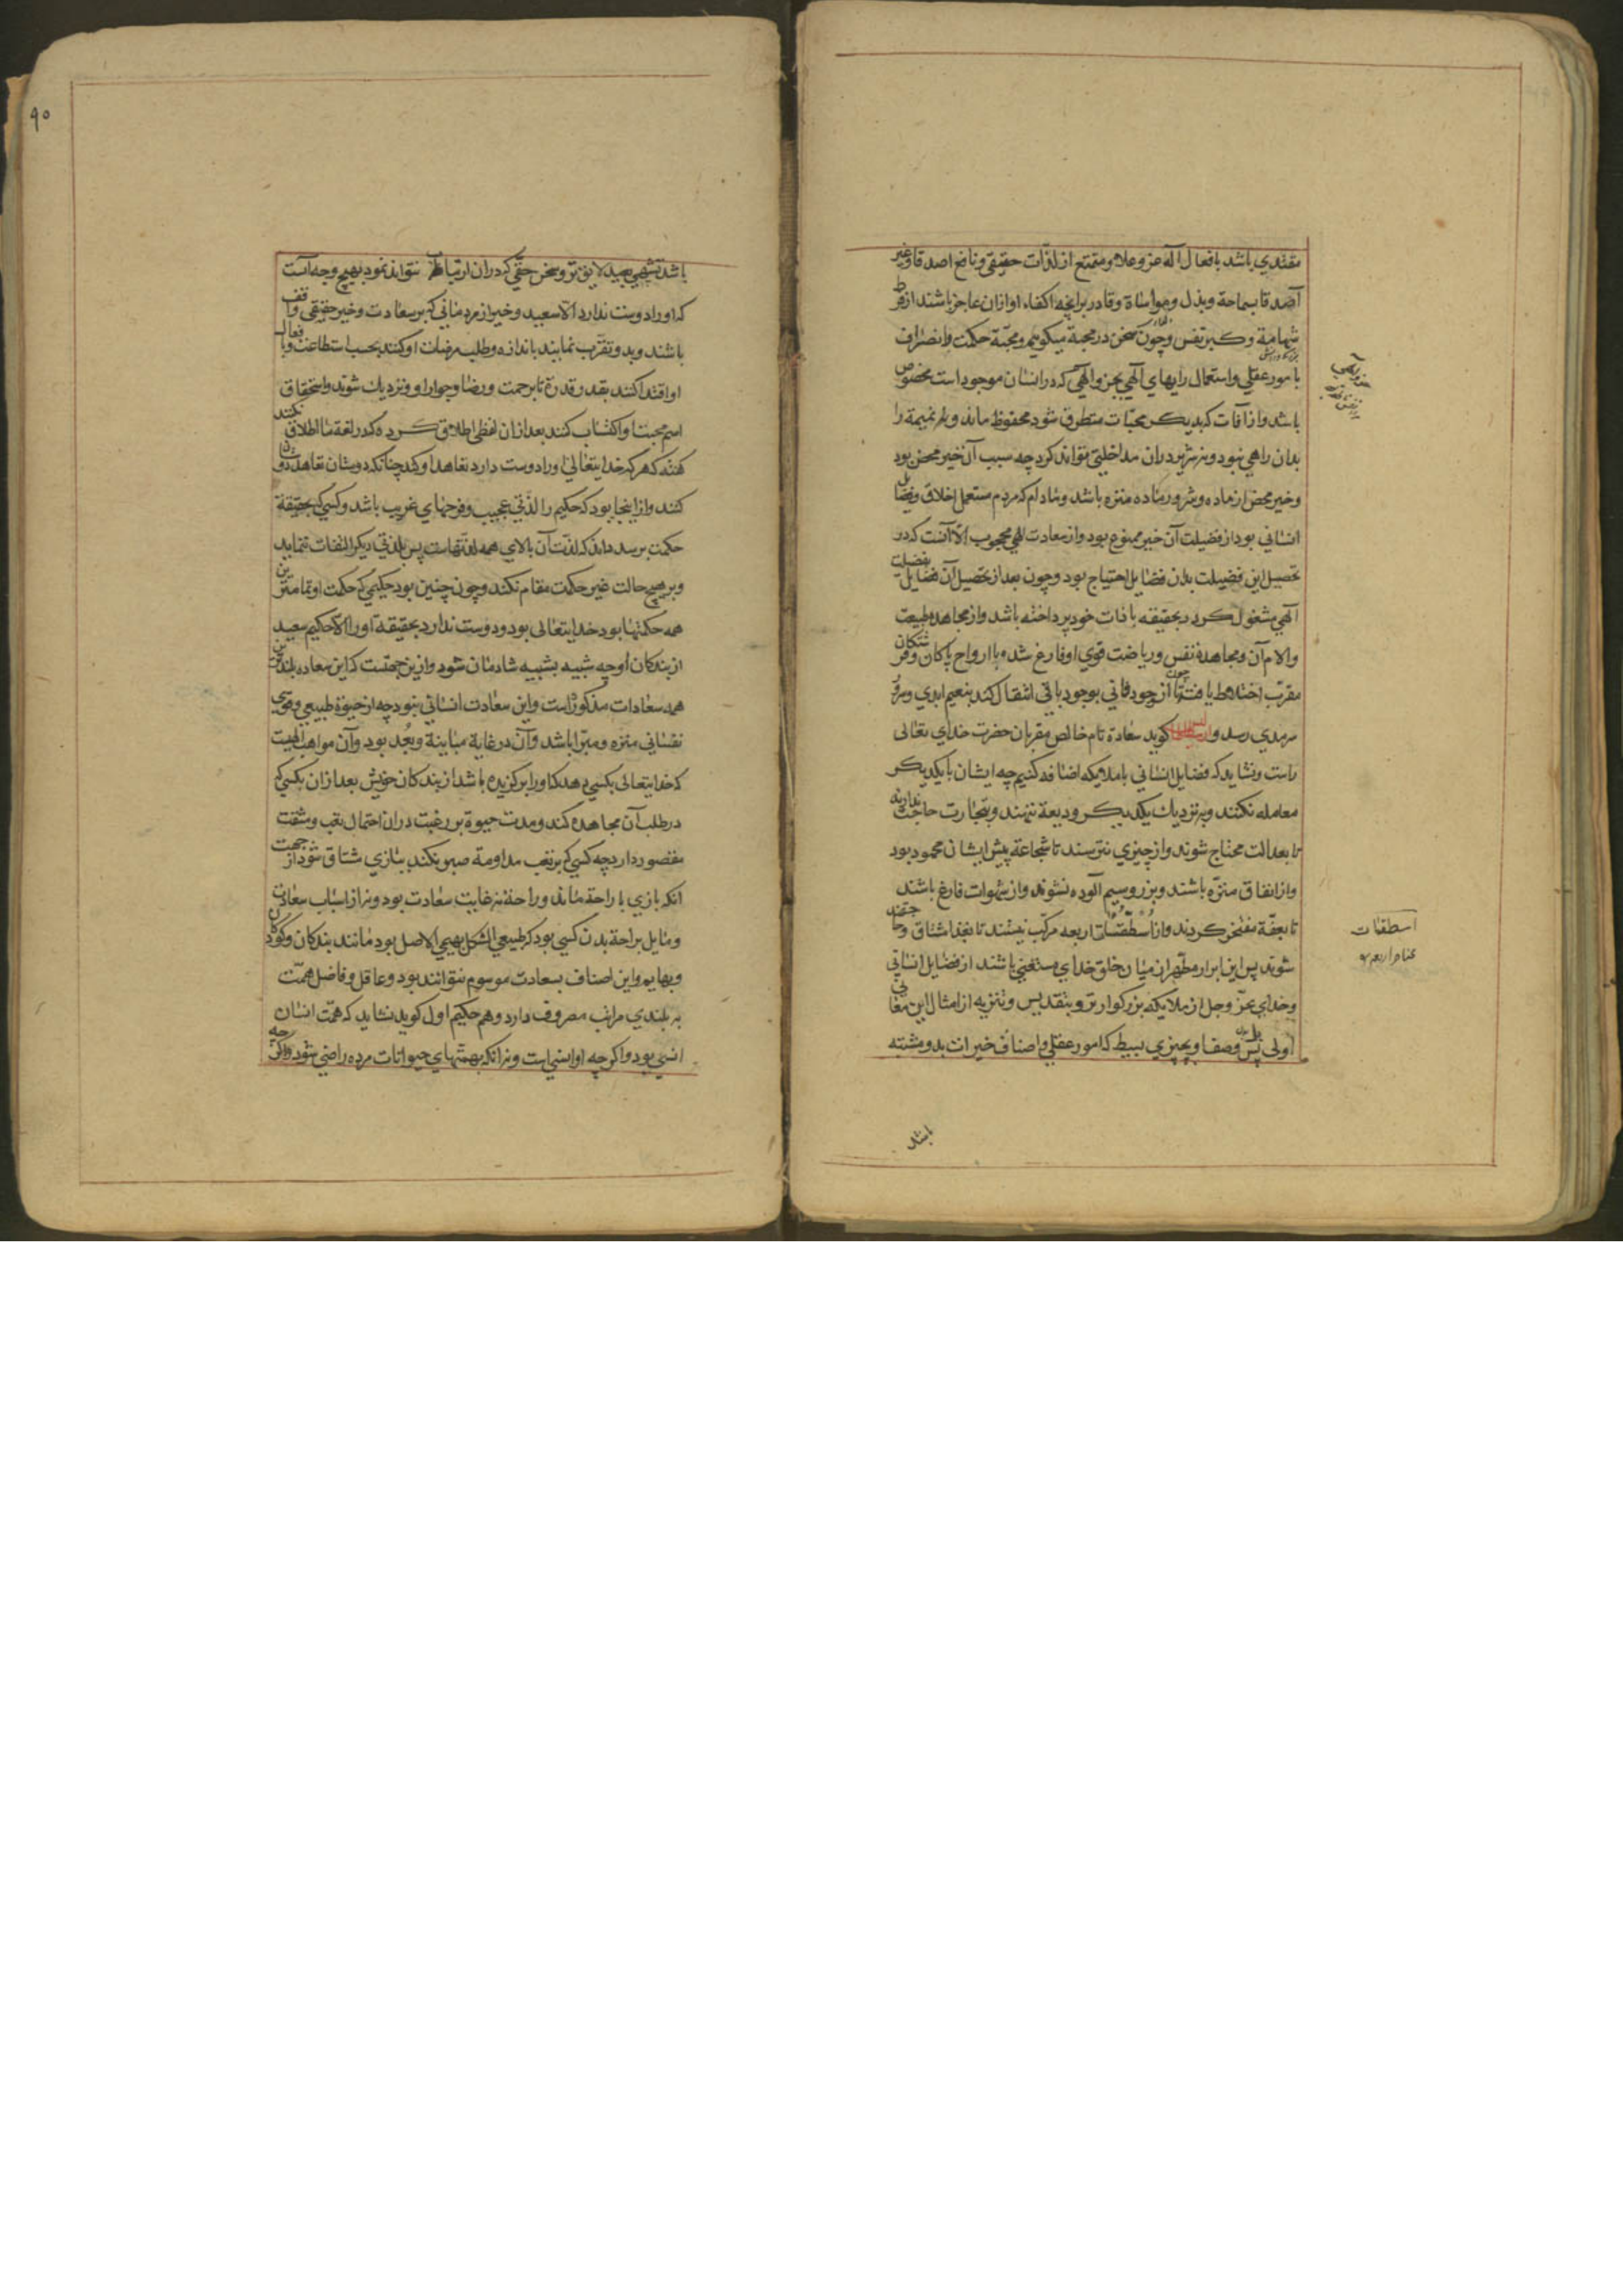 مقتدی باشد بافعال اله عز و علا و متمتع از لذّات حقیقی و نافع اصدقا و غیر
اصدقا بسماحة و بذل و مواساة و قادر برانچه اکفاء او ازان عاجز باشند از فرط
شهامة و کبر نفس و چون سخن در محبة میکوییم و محبّة حکمت و انصراف
بامور عقلی و استعمال رایهای الهی بجزو الهی که در انسان موجود است مخصوص
باشد و از آفات که بدیکر محبّات متطرق شود محفوظ ماند و نه نمیمة را
بدان راهی بود و نه شریر دران مداخلتی تواند کرد چه سبب آن خیر محض بود
و خیر محض از ماده و شرور ماده منزه باشد و مادام که مردم مستعمل اخلاق و فضایل
انسانی بود از فضیلت آن خیر ممنوع بود و از سعادت الهی محجوب الّا آنست که در
تحصیل این فضیلت بدان فضایل احتیاج بود و چون بعد از تحصیل آن فضایل بفضیلت
الهی مشغول کردد بحقیقه با ذات خود پرداخته باشد و از مجاهده طبیعت
و الام آن و مجاهدهٔ نفس و ریاضت قوی او فارغ شده با ارواح پاکان و فرشتکان
مقرّب اختلاط یافته تا چون از وجود فانی بوجود باقی انتقال کند بنعیم ابدی و سرور
سرمدی رسد و ارسطاطالیس کوید سعادة تام خالص مقربان حضرت خدای تعالی
راست و نشاید که فضایل انسانی با ملایکه اضافه کنیم چه ایشان با یکدیکر
معامله نکنند و بنزدیک یکدیکر ودیعة ننهند و بتجارت حاجت ندارند
تا بعدالت محتاج شوند و از چیزی نترسند تا شجاعة پیش ایشان محمود بود
و از انفاق منزّه باشند و بزر و سیم آلوده نشوند و از شهوات فارغ باشند
تا بعفّة مفتخر کردند و از اُسْطُقُسّات اربعه مرکّب نیستند تا بغذا مشتاق و محتاج
شوند پس این ابرار مطهّر از میان خلق خدای مستغنی باشند از فضایل انسانی
و خدای عزّ و جل از ملایکه بزرکوارتر و بتقدیس و تنزیه از امثال این معانی
اولی پس وصف او بچیزی بسیط که امور عقلی و اصناف خیرات بدو متشبه
اسطقسات
عناصر اربعه
باشد
۹۰
باشد تشبهی بعید لایق تر و سخن حقّی که دران ارتیاب نتواند نمود بهیچ وجه آنست
که او را دوست ندارد الّا سعید و خیر از مردمانی که بر سعادت و خیر حقیقی واقف
باشند و بدو تقرّب نمایند باندازه و طلب مرضات او کنند بحسب استطاعت و بافعال
او اقتدا کنند بقدر قدرة تا برحمت و رضا و جوار او نزدیک شوند و استحقاق
اسم محبت او اکتساب کنند بعد ازان لفظی اطلاق کرده که در لغة ما اطلاق نکنند
کفته که هر که خدایتعالی او را دوست دارد تعاهد او کند چنانکه دوستان تعاهد دوستان
کنند و از اینجا بود که حکیم را لذّتی عجیب و فرحهای غریب باشد و کسی که بحقیقة
حکمت برسد داند که لذّت آن بالای همه لذّتهاست پس بلذتی دیکر التفات ننماید
و بر هیچ حالت غیر حکمت مقام نکند و چون چنین بود حکیمی که حکمت او تمامترین
همه حکمتها بود خدایتعالی بود و دوست ندارد بحقیقة او را الّا حکیم سعید
از بندکان او چه شبیه بشبیه شادمان شود و ازین جهتست که این سعاده بلندترین
همه سعادات مذکور است و این سعادت انسانی نبود چه از حیوة طبیعی و قوی
نفسانی منزه و مبرا باشد و آن در غایة مباینة و بُعد بود و آن مواهب الهیست
که خدایتعالی بکسی دهد که او را برکزیده باشد از بندکان خویش بعد ازان بکسی که
در طلب آن مجاهده کند و مدت حیوة بر رغبت دران احتمال تعب و مشقت
مقصور دارد چه کسی که بر تعب مداومة صبر نکند ببازی مشتاق شود از جهت
انکه بازی با راحة ماند و راحة نه غایت سعادت بود و نه از اسباب سعادت
و مایل براحة بدن کسی بود که طبیعی الشکل بهیمی الاصل بود مانند بندکان و کودکان
و بهایم و این اصناف بسعادت موسوم نتوانند بود و عاقل و فاضل همّت
به بلندی مراتب مصروف دارد و هم حکیم اول کوید نشاید که همّت انسان
انسی بود و اکرچه او انسی است و نه انکه بهمّتهای حیوانات مرده راضی شود و اکرچه